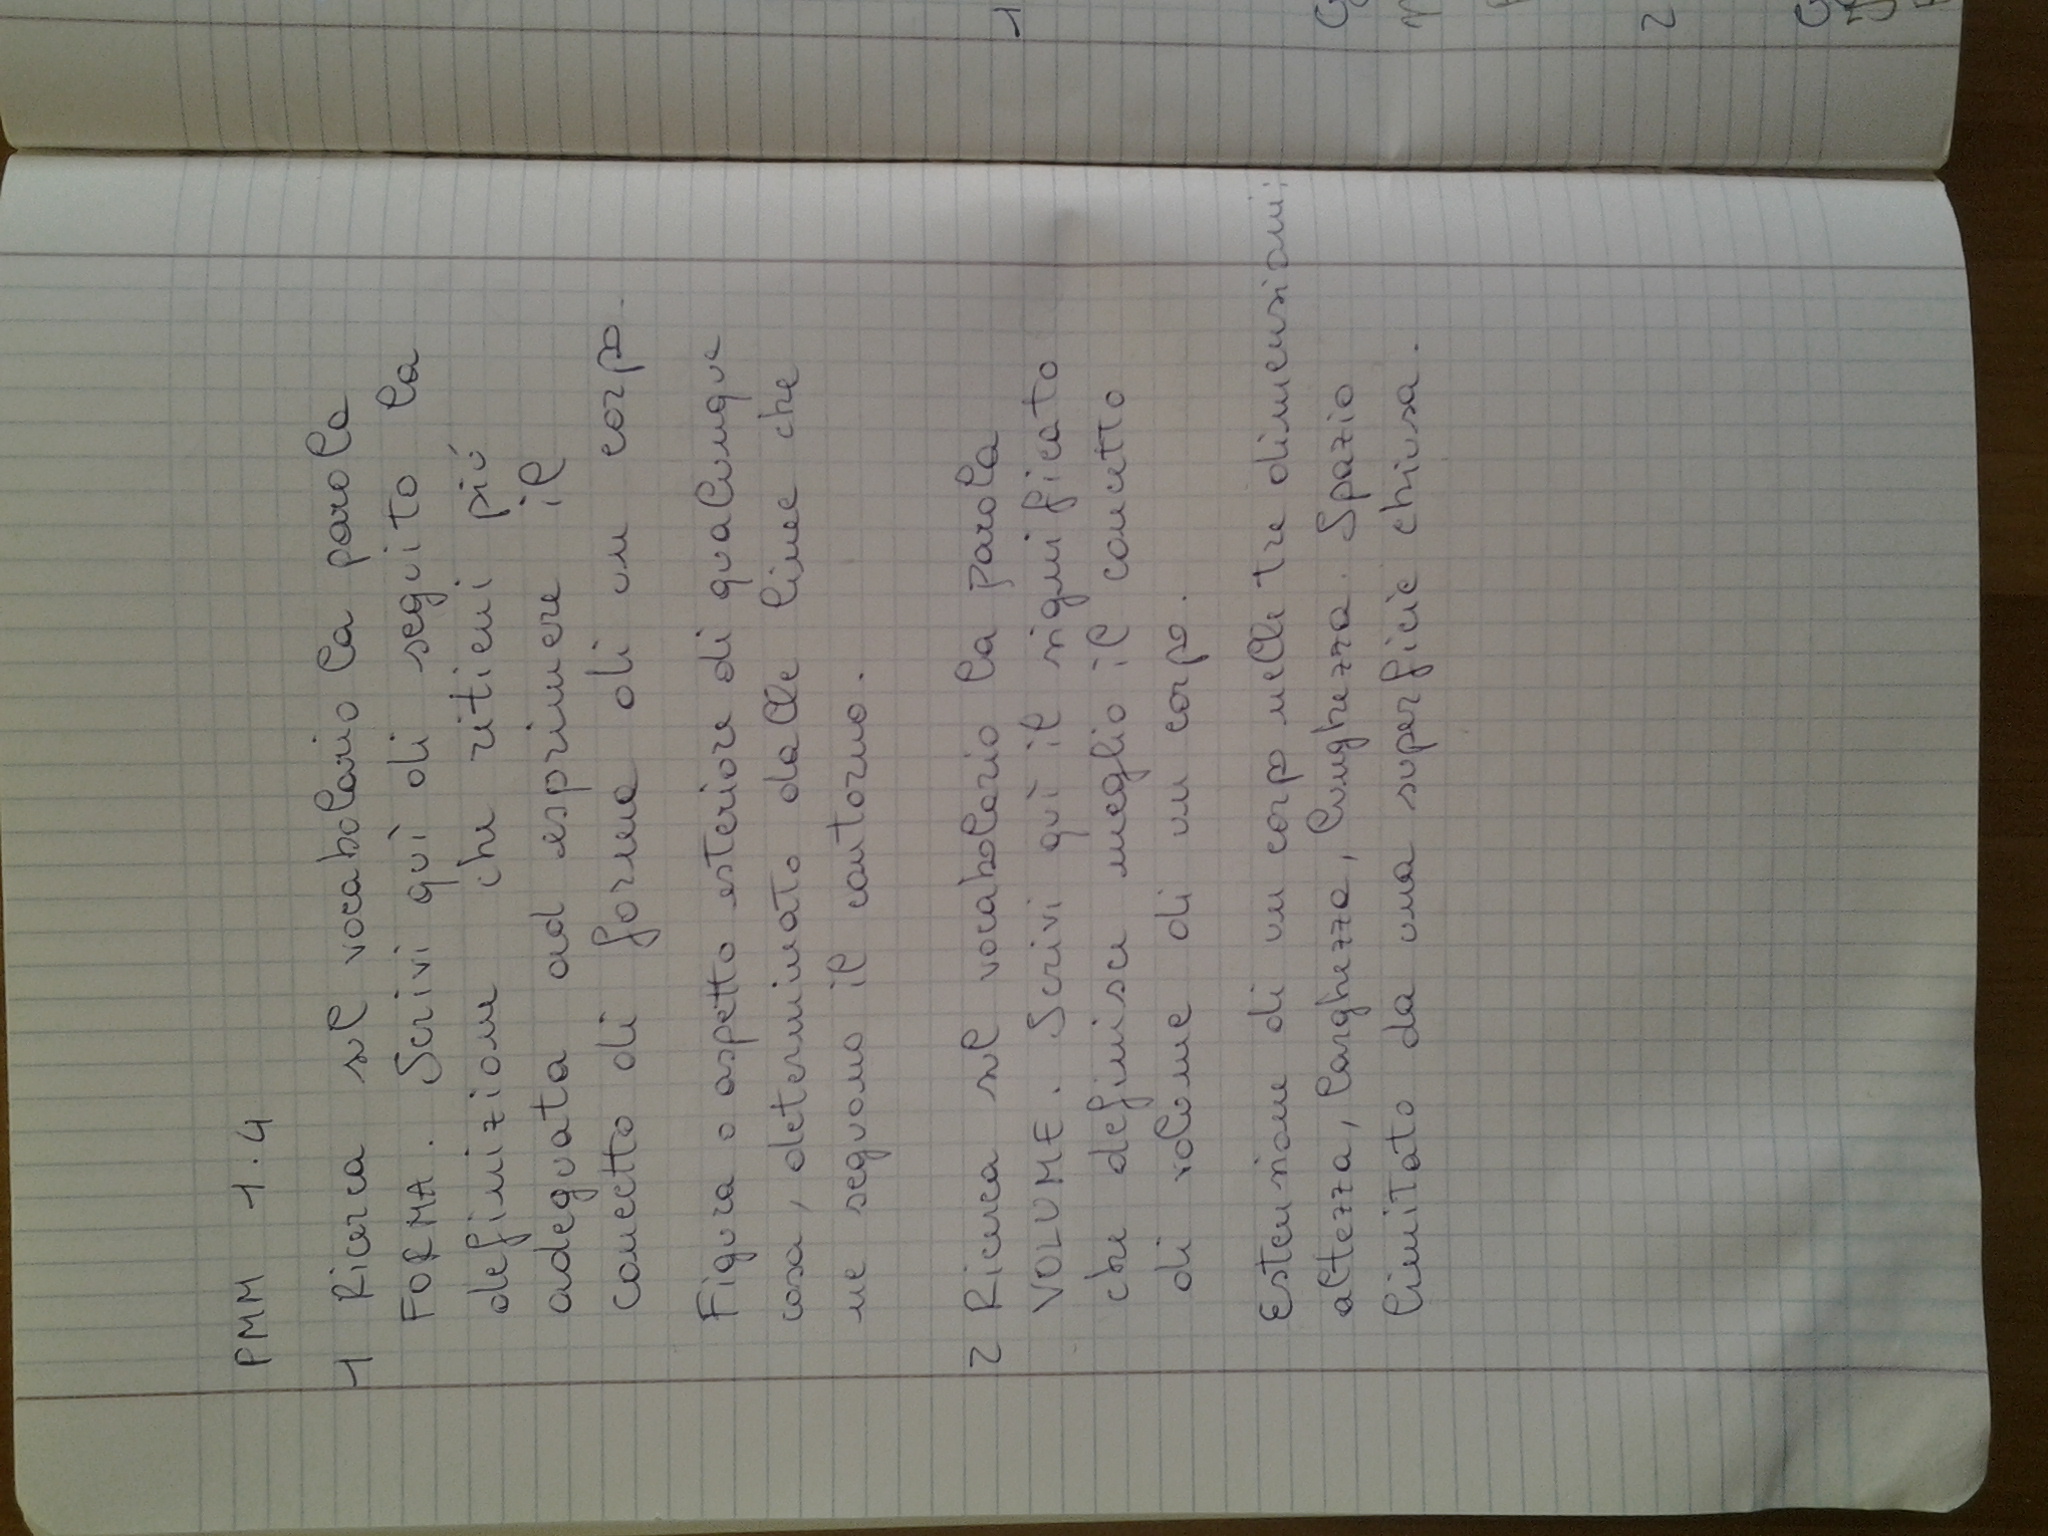 PMM 1.4
1 Ricerca sul vocabolario la parola
FORMA. Scrivi quì di seguito la
definizione che ritieni più
adeguata ad esprimere il
concetto di forma di un corpo.
Figura o aspetto esteriore di qualunque
cosa, determinato dalle linee che
ne seguono il contorno.
2 Ricerca sul vocabolario la parola
VOLUME. Scrivi quì il significato
che definisce meglio il concetto
di volume di un corpo.
Estensione di un corpo nelle tre dimensioni:
altezza, larghezza, lunghezza. Spazio
limitato da una superficie chiusa.
1
2